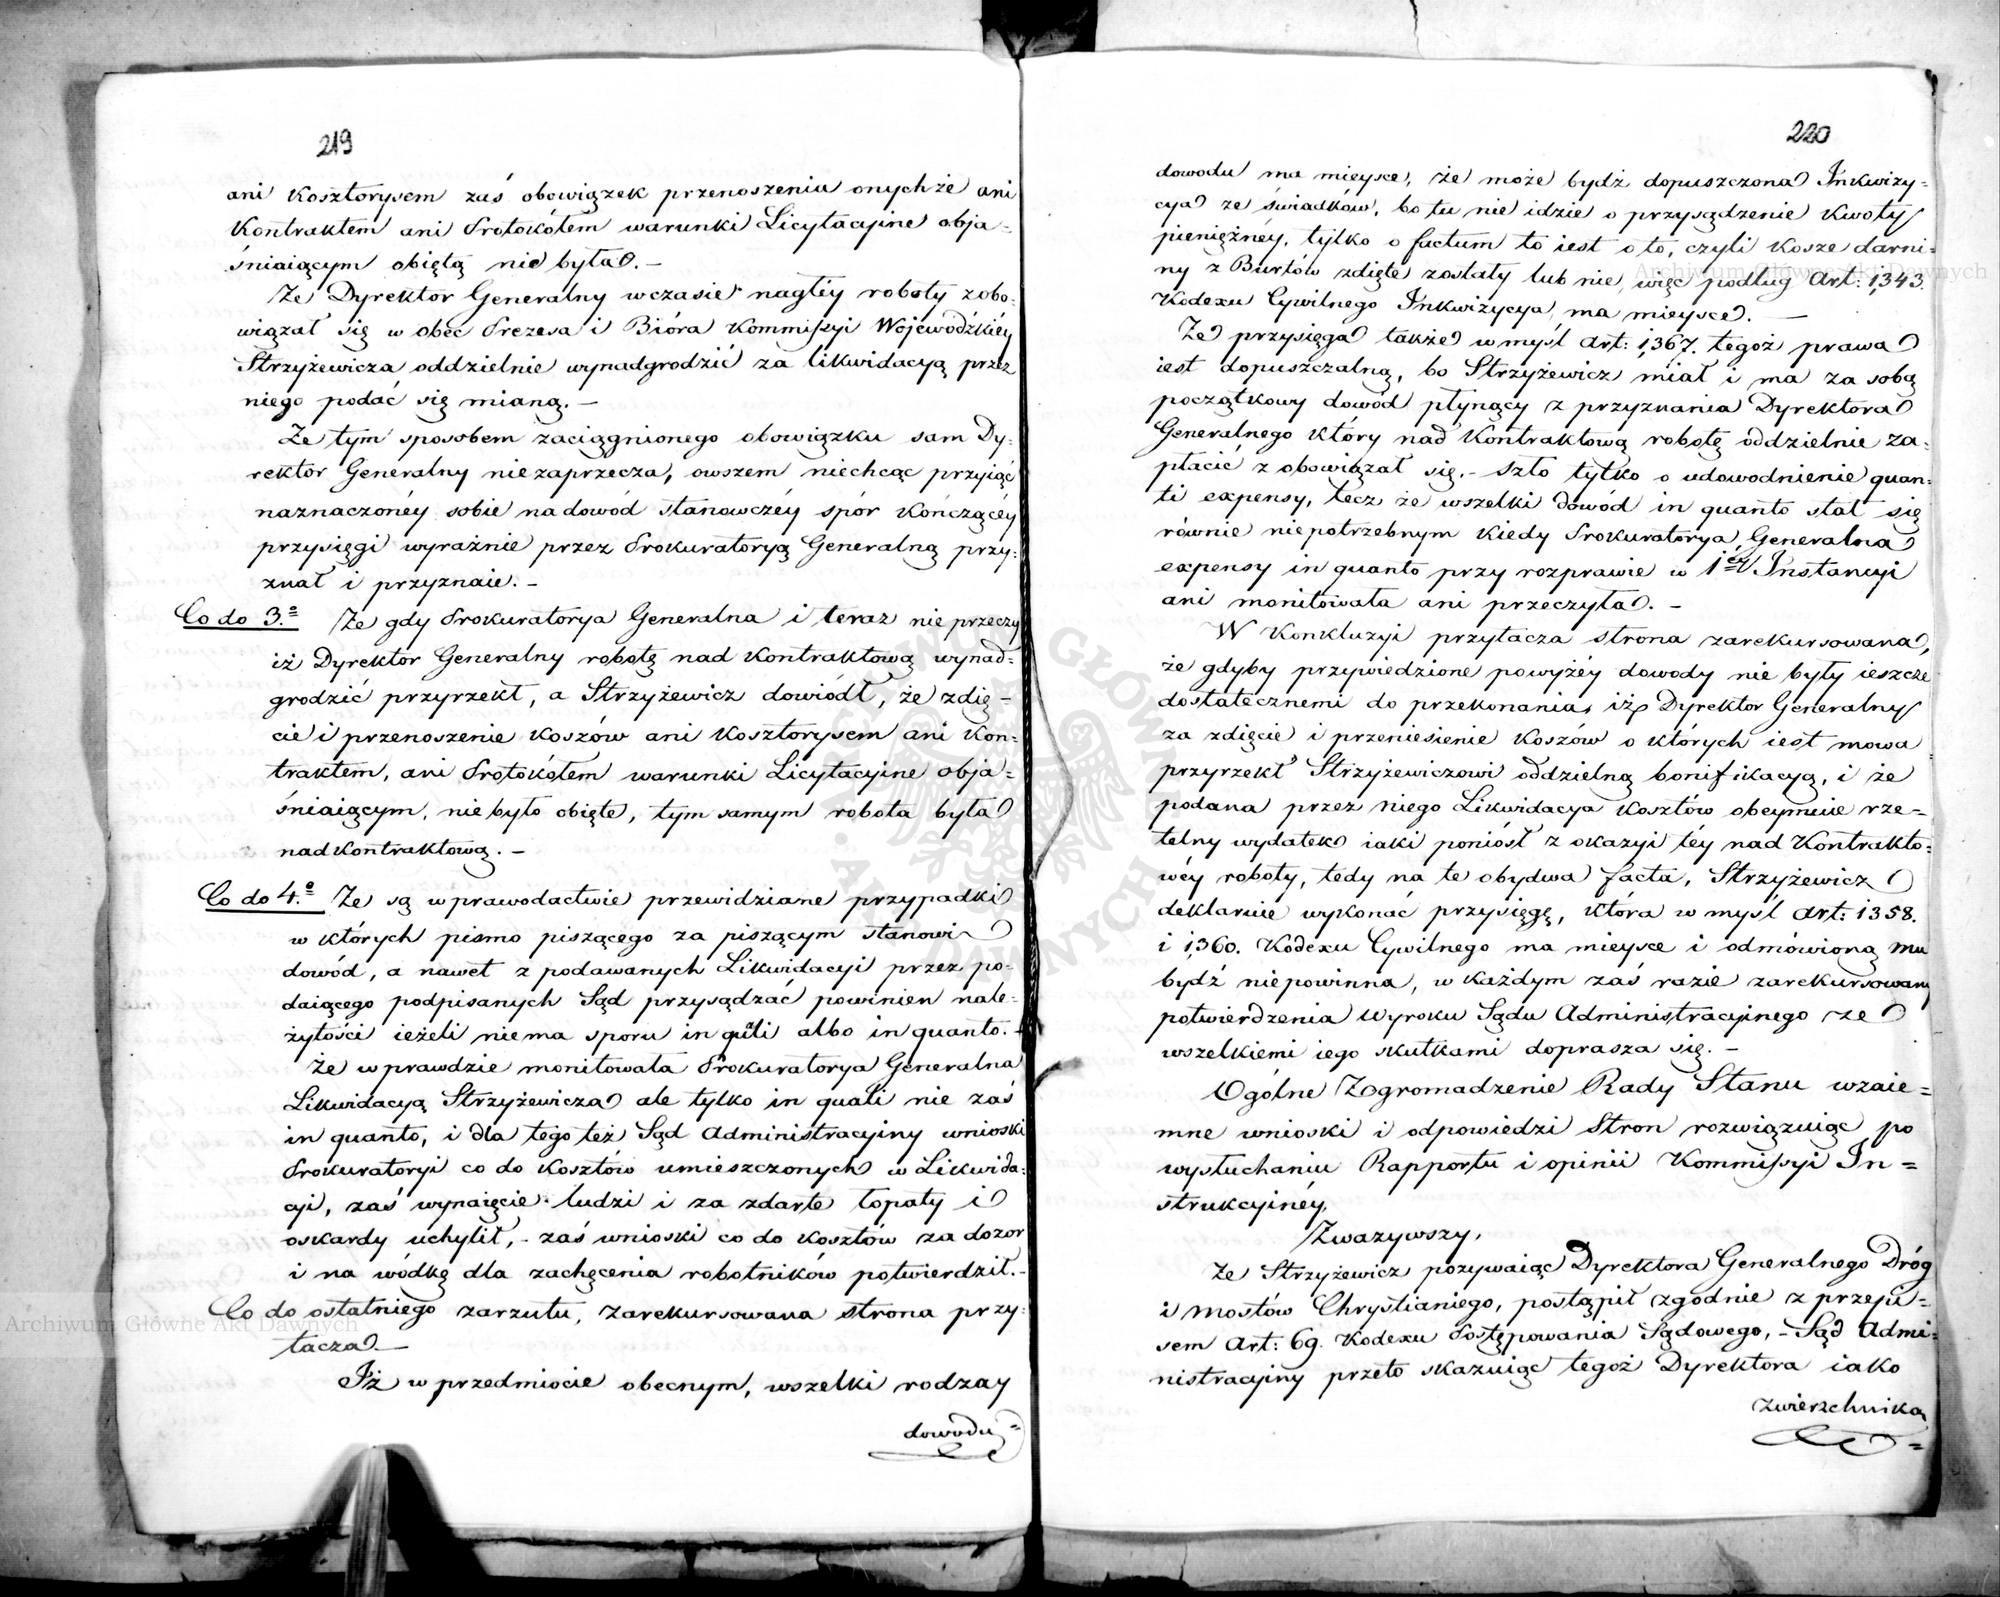 219
ani Kosztorysem zaś obowiązek przenoszenia onychże ani
Kontraktem ani Protokółem warunki Licytacyine obja-
śniaiącym obiętą nie była. —
Że Dyrektor Generalny w czasie nagłéy roboty zobo-
wiązał się w obec Prezesa i Bióra Kommissyi Wojewódzkiéy
Strzyżewicza oddzielnie wynadgrodzić za likwidacyą przez
niego podać się mianą. —
Że tym sposobem zaciągnionego obowiązku sam Dy-
rektor Generalny niezaprzecza, owszem niechcąc przyiąć
naznaczonéy sobie na dowód stanowczéy spór kończącéy
przysięgi wyraźnie przez Prokuratoryą Generalną przy-
znał i przyznaie. —
Co do 3.º Że gdy Prokuratorya Generalna i teraz nie przeczy
iż Dyrektor Generalny robotę nad Kontraktową wynad-
grodzić przyrzekł, a Strzyżewicz dowiódł, że zdię-
cie i przenoszenie koszów ani Kosztorysem ani Kon-
traktem, ani Protokółem warunki Licytacyine obja-
śniaiącym, nie było obięte, tym samym robota była
nad Kontraktową. —
Co do 4.º Że są w prawodactwie przewidziane przypadki
w których pismo piszącego za piszącym stanowi
dowód, a nawet z podawanych Likwidacyi przez po-
daiącego podpisanych Sąd przysądzać powinien nale-
żytości ieżeli niema sporu in quali albo in quanto. +
Że wprawdzie monitowała Prokuratorya Generalna
Likwidacyą Strzyżewicza ale tylko in quali nie zaś
in quanto, i dla tego też Sąd Administracyiny wnioski
Prokuratoryi co do kosztów umieszczonych w Likwida-
cyi, zaś wynaięcie ludzi i za zdarte łopaty i
oskardy uchylił, - zaś wnioski co do kosztów za dozor
i na wódkę dla zachęcenia robotników potwierdził. -
Co do ostatniego zarzutu, zarekursowana strona przy-
tacza. —
Iż w przedmiocie obecnym, wszelki rodzay
dowodu =
220
dowodu ma mieysce, że może bydź dopuszczona Inkwizy-
cya ze świadków, bo tu nie idzie o przysądzenie Kwoty
pieniężney, tylko o factum to iest o to, czyli kosze darni-
ny z Burtów zdięte zostały lub nie, więc podług Art: 1,343.
Kodexu Cywilnego Inkwizycya ma mieysce. —
Że przysięga także w myśl Art: 1,367. tegoż prawa
iest dopuszczalną, bo Strzyżewicz miał i ma za sobą
początkowy dowód płynący z przyznania Dyrektora
Generalnego który nad Kontraktową robotę oddzielnie za-
płacić zobowiązał się. - Szło tylko o udowodnienie quan-
ti expensy, lecz że wszelki dowód in quanto stał się
równie niepotrzebnym kiedy Prokuratorya Generalna
expensy in quanto przy rozprawie w 1éy Instancyi
ani monitowała ani przeczyła. —
W Konkluzyi przytacza strona zarekursowana,
że gdyby przywiedzione powyżéy dowody nie były ieszcze
dostatecznemi do przekonania, iż Dyrektor Generalny
za zdięcie i przeniesienie Koszów o których iest mowa
przyrzekł Strzyżewiczowi oddzielną bonifikacyą, i że
podana przez niego Likwidacya kosztów obeymuie rze-
telny wydatek iaki poniósł z okazyi téy nad Kontrakto-
wéy roboty, tedy na te obydwa facta, Strzyżewicz
deklaruie wykonać przysięgę, która w myśl Art: 1358.
i 1,360. Kodexu Cywilnego ma mieysce i odmówioną mu
bydź niepowinna, w każdym zaś razie zarekursowany
potwierdzenia Wyroku Sądu Administracyinego ze
wszelkiemi iego skutkami doprasza się. —
Ogólne Zgromadzenie Rady Stanu wzaie-
mne wnioski i odpowiedzi Stron rozwiązuiąc po
wysłuchaniu Rapportu i opinii Kommissyi In-
strukcyinéy,
Zważywszy,
Że Strzyżewicz pozywaiąc Dyrektora Generalnego Dróg
i mostów Chrystianiego, postąpił zgodnie z przepi-
sem Art: 69. Kodexu Postępowania Sądowego, - Sąd Admi-
nistracyiny przeto skazuiąc tegoż Dyrektora iako
zwierzchnika
=
Archiwum Główne Akt Dawnych
Archiwum Główne Akt Dawnych